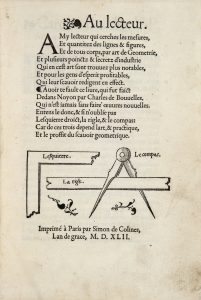 Au lecteur.
AMy lecteur qui cerches les mesures,
Et quantitez des lignes & figures,
Et de tous corps, par art de Geometrie,
Et plusieurs poincts & secretz d'industrie
Qui en cest art sont trouuez plus notables,
Et pour les gens d'esperit profitables,
Qui leur scauoir redigent en effect.
Auoir te fault ce liure, qui fut faict
Dedans Noyon par Charles de Bouuelles.
Qui n'est iamais sans faire œuures nouuelles.
Entens le donc, & si n'oublie pas
Lesquierre droict, la rigle, & le compas
Car de ces trois depend lart, & practique,
Et le proffit du scauoir geometrique.
Lesquierre.
Le compas.
La rigle.
Imprimé à Paris par Simon de Colines,
Lan de grace, M. D. XLII.